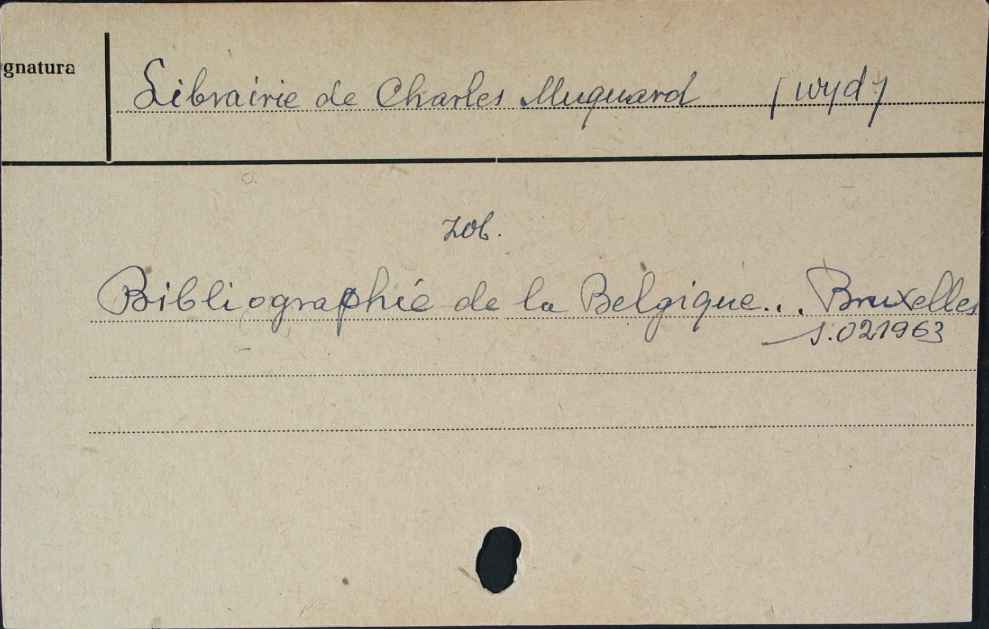 gnatura
Librairie de Charles Muquard (wyd)
zob.
Bibliographie de la Belgique... Bruxelles
J.021963